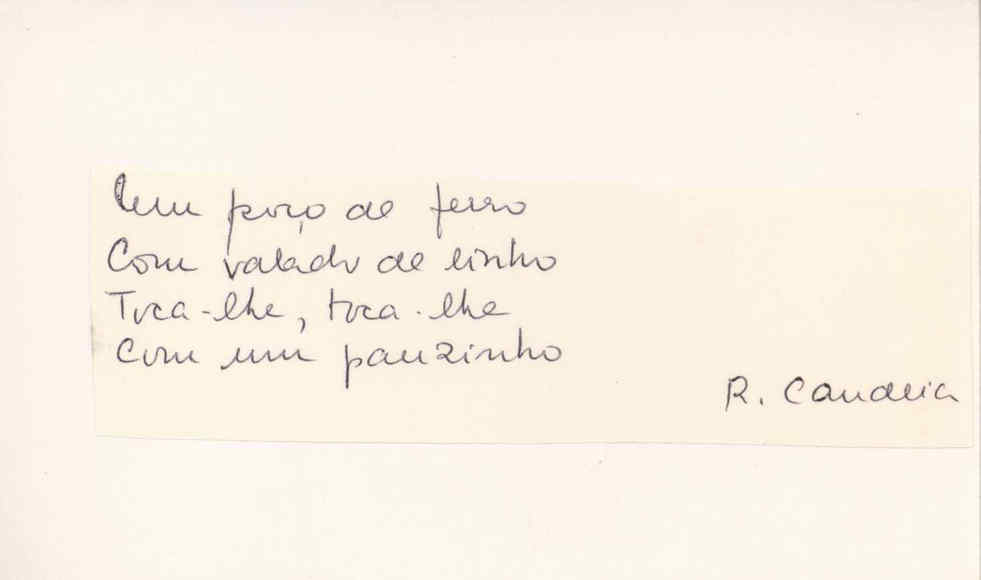 Um poço de ferro
Com valado de linho
Toca-lhe, toca-lhe
Com um pauzinho
R. Candeia